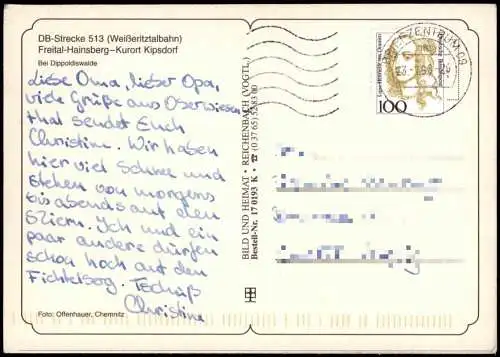 DB-Strecke 513 (Weißeritztalbahn)
Freital-Hainsberg–Kurort Kipsdorf
Bei Dippoldiswalde
Liebe Oma, lieber Opa,
viele Grüße aus Oberwiesen
thal sendet Euch
Christine. Wir haben
hier viel Schnee und
stehen von morgens
bis abends auf den
Skiern. Ich und ein
paar andere dürfen
schon hoch auf den
Fichtelberg. Tschüß
Christine
Foto: Offenhauer, Chemnitz
BILD UND HEIMAT • REICHENBACH (VOGTL.)
Bestell-Nr. 17 0193 K • ☎ (0 37 65) 5 28 3 00
BRIEFZENTRUM 09
100